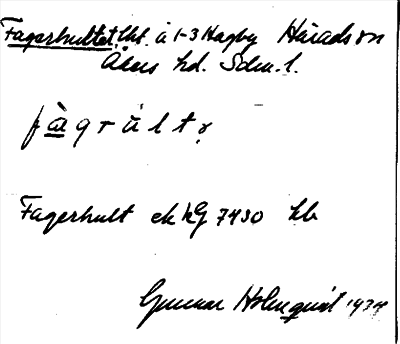 Fagerhultet, lht. å 1-3 Hagby Härads sn
Åkers hd. Sdm. l.
fàgrúltɣ
Fagerhult ek kG 7430 kb
Gunnar Holmquist 1934